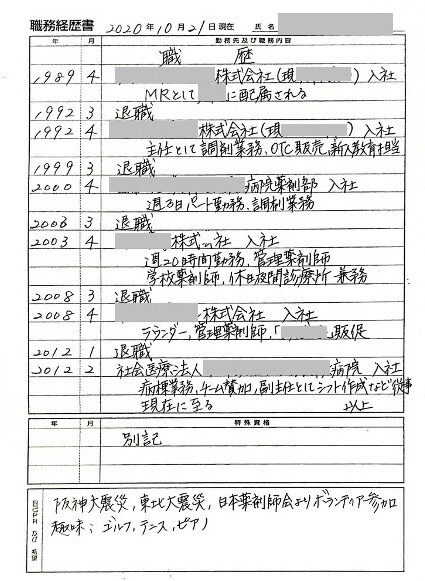 職務経歴書 2020年10月21日現在 氏名
勤務先及び職務内容
年 月 職歴
1989 4 株式会社(現 ) 入社
MRとして に配属される
1992 3 退職
1992 4 株式会社(現 ) 入社
主任として調剤業務、OTC販売、新入教育担当
1999 3 退職
2000 4 病院薬剤部 入社
週3日パート勤務、調剤業務
2003 3 退職
2003 4 株式会社 入社
週20時間勤務、管理薬剤師
学校薬剤師、休日夜間診療所 兼務
2008 3 退職
2008 4 株式会社 入社
ラウンダー、管理薬剤師、「 販促
2012 1 退職
2012 2 社会医療法人 病院 入社
病棟業務、チーム参加、副主任としてシフト作成など従事
現在に至る 以上
年 月 特殊資格
別記
自己PR 及び 希望
阪神大震災、東北大震災、日本薬剤師会よりボランティア参加
趣味;ゴルフ、テニス、ピアノ